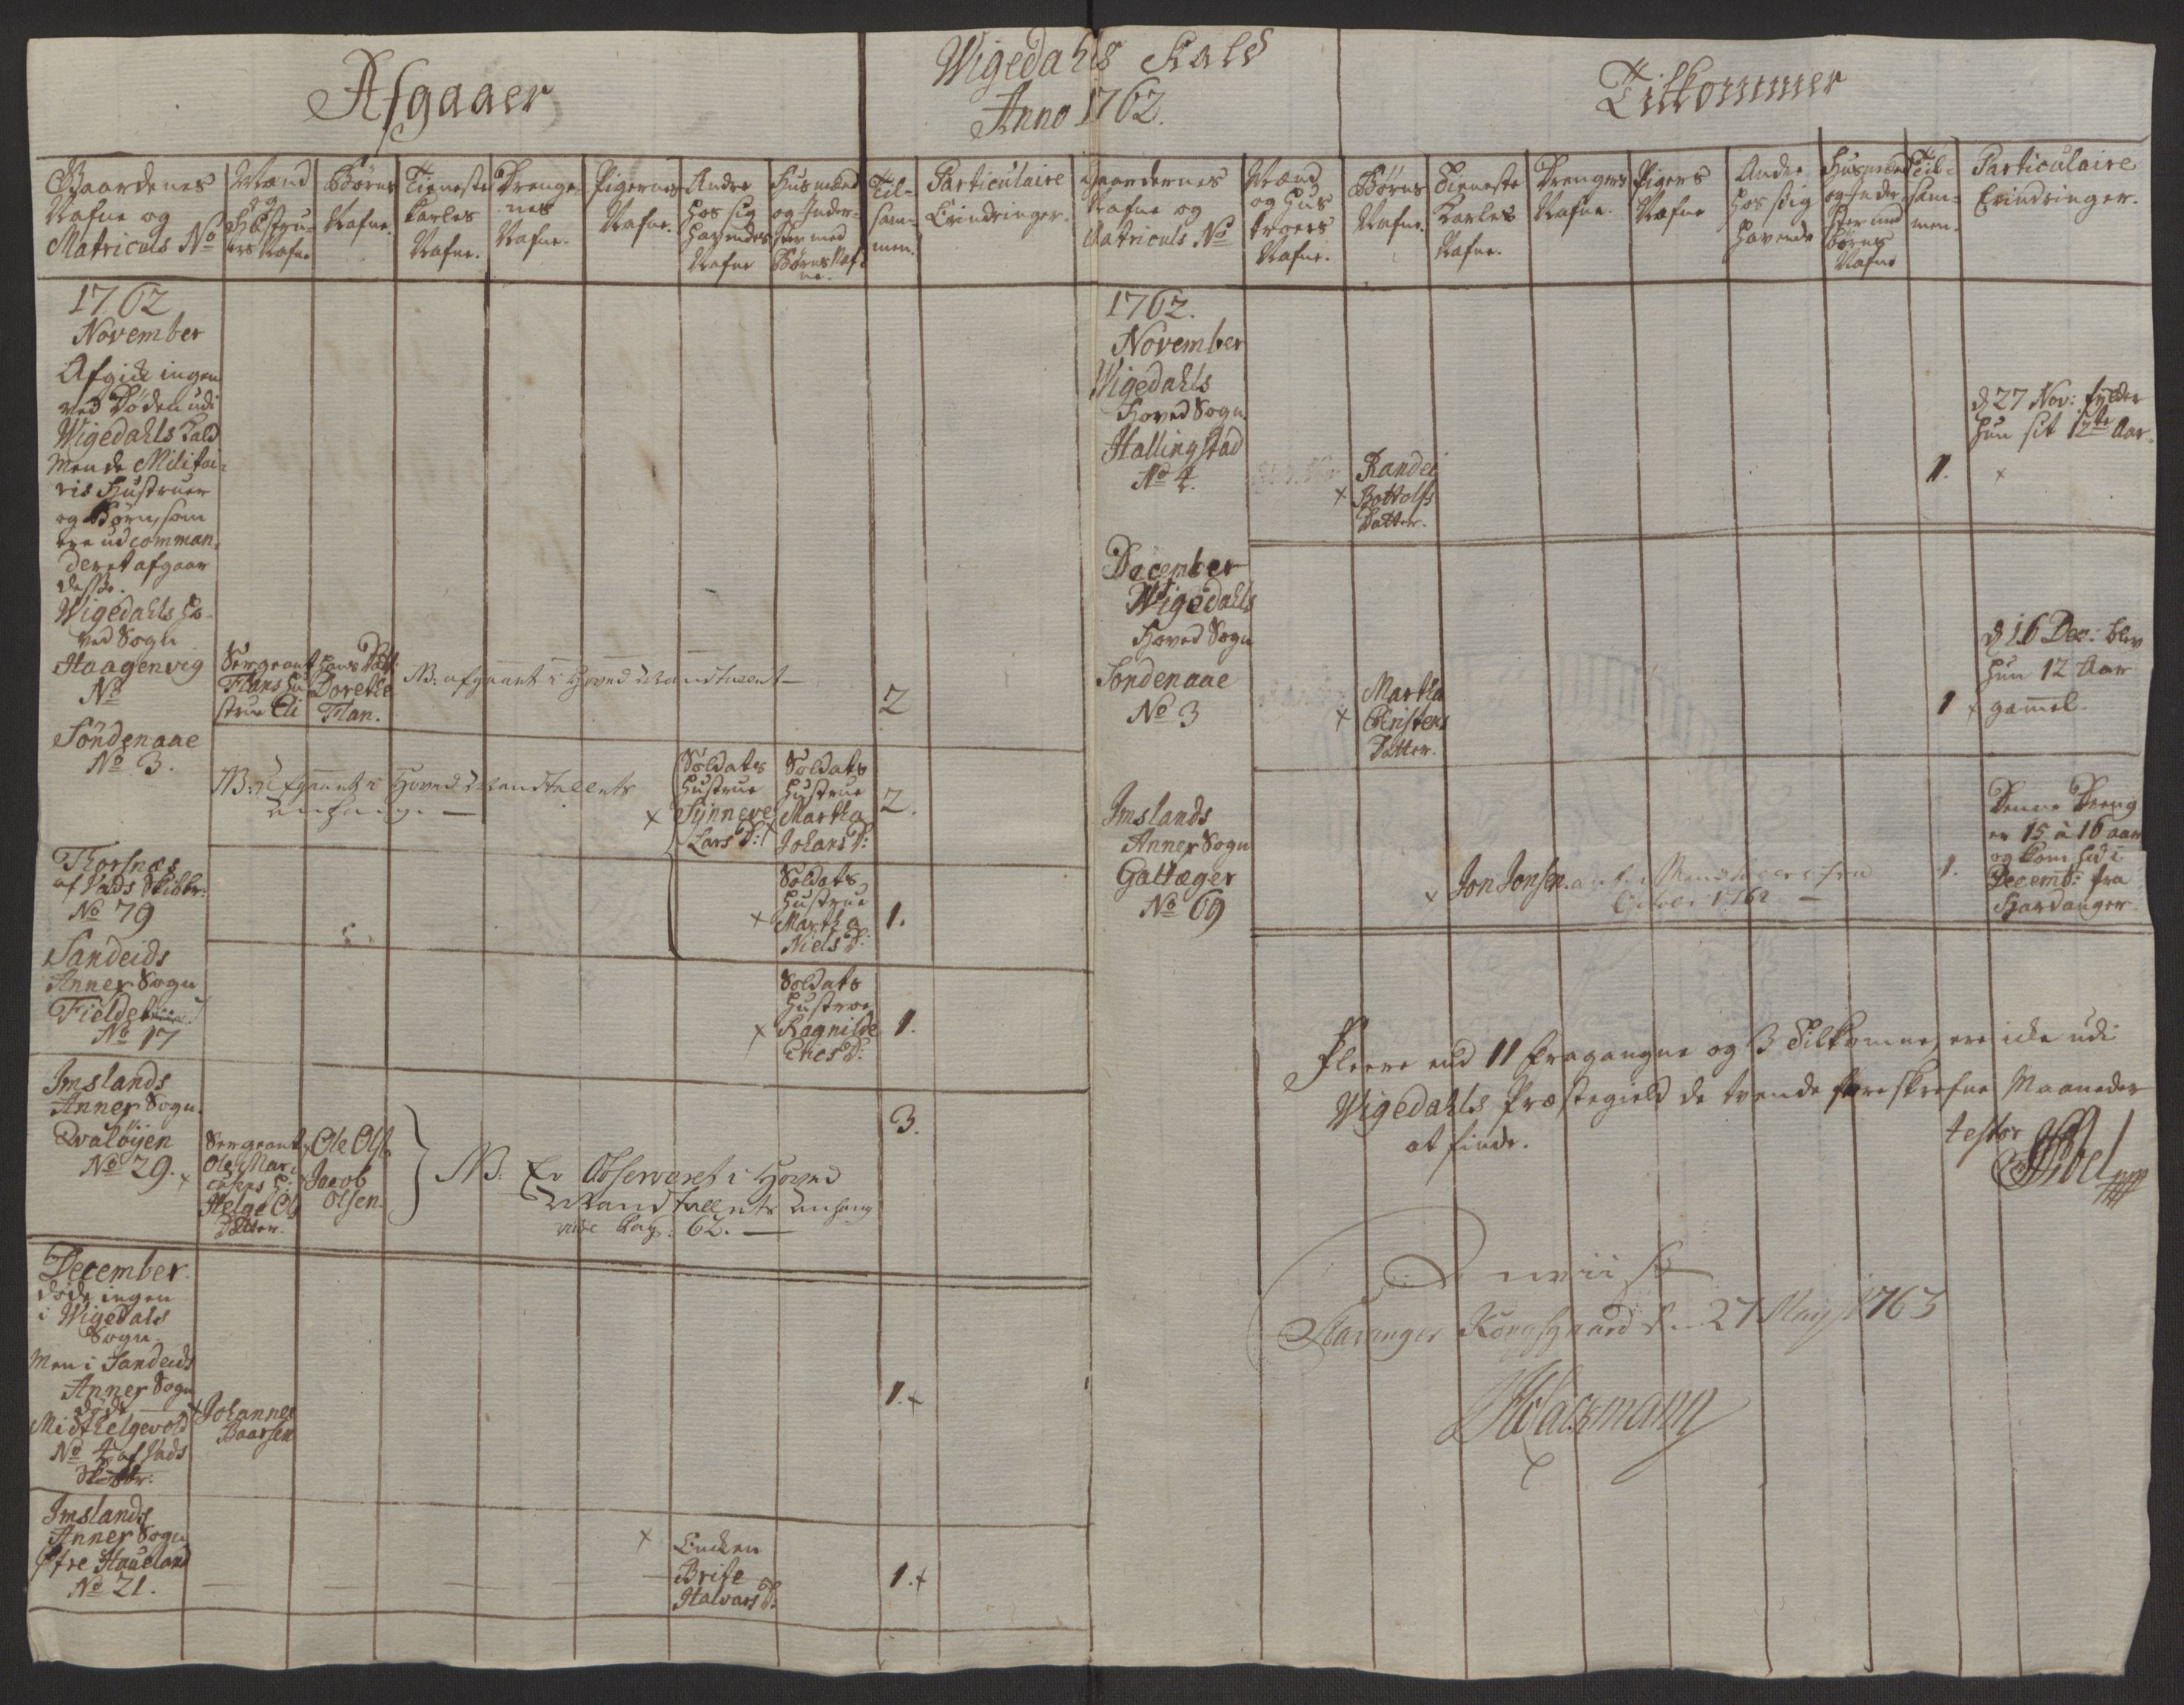 Wigedahls Kald
Anno 1762.
Afgaaer
Gaardenes
Nafne og
Matriculs No
Mænd
og
Hustru-
ers Nafne
Børns
Nafne.
Tieneste
Karles
Nafne.
Drenge-
nes
Nafne.
Pigernes
Nafne.
Andre
hos sig
havendes
Nafne
Husmænd
og Inder-
ster med
Børns Naf-
ne.
Til-
sam-
men.
Particulaire
Erindringer.
1762
November
Afgick ingen
ved Døden udi
Wigedahls Kald
Men de Militai-
ris Hustruer
og Børn, som
ere udcomman-
deret afgaar
desse.
Wigedahls Ho-
ved Sogn
Haagenvig
No
Sergeant
Flans Hu
strue Eli
Hans Datt:
Dorethe
Flan.
NB: afgaaet i Hoved Mandtallet
2
Söndenaae
No 3.
NB: Afgaaet i Hoved Mandtallets
Anhang.
Soldats
Hustrue
x Synneve
Lars D:
Soldats
Hustrue
Martha
Johans D:
2.
Thorsnæs
af Vads Skibbr:
No 79
Soldats
Hustrue
x Martha
Niels D:
1.
Sandeids
Anner Sogn
Fielde
No 17
Soldats
Hustroe
x Ragnilde
D:
1.
Imslands
Anner Sogn.
Qvaløyen
No 29. x
Sergeant
Ole Mari
H:
Helge Ols
Datter.
Ole Ols.
Jacob
Olsen.
NB: Er Observeret i Hoved
Mandtallets Anhang
vide Pag: 62.
3.
December.
døde ingen
i Wigedals
Sogn.
Men i Sandeids
Anner Sogn
døde
Midthelgevold
No 4 af Vads
Skibbr:
x Johannes
Baarsen
1. x
Imslands
Anner Sogn
Øfre Haueland
No 21.
x Encken
Brite
Halvars D:
1. x
Tilkommer
Gaardernes
Nafne og
Matriculs No
Mænd
og Hus
troers
Nafne.
Børns
Nafne.
Tieneste
Karles
Nafne.
Drengers
Nafne.
Pigers
Nafne
Andre
hos sig
havende
Husmænd
og Inder-
ster med
Børns
Nafne
Til-
sam-
men.
Particulaire
Erindringer.
1762.
November
Wigedahls
Hoved Sogn.
Hallingstad
No 4.
x Randei
Bottolfs
Datter.
1.
d 27 Nov: fylder
hun sit 12te Aar.
x
December
Wigedahls
Hoved Sogn
Söndenaae
No 3
x Martha
Christens
Datter.
1 x
d 16 Dec: blev
hun 12 Aar
gammel.
Imslands
Anner Sogn
Galtæger
No 69
x Jon Jonsen.
October 1762
1.
Denne Dreng
er 15 à 16 aar
og kom hid i
Decemb: fra
Hardanger.
Fleere end 11 fragangne og 3 Tilkomne, ere icke udi
Wigedahls Præstegield de tvende foreskrefne Maaneder
at finde.
testor
Stavanger Kongsgaard d. 27 May 1763